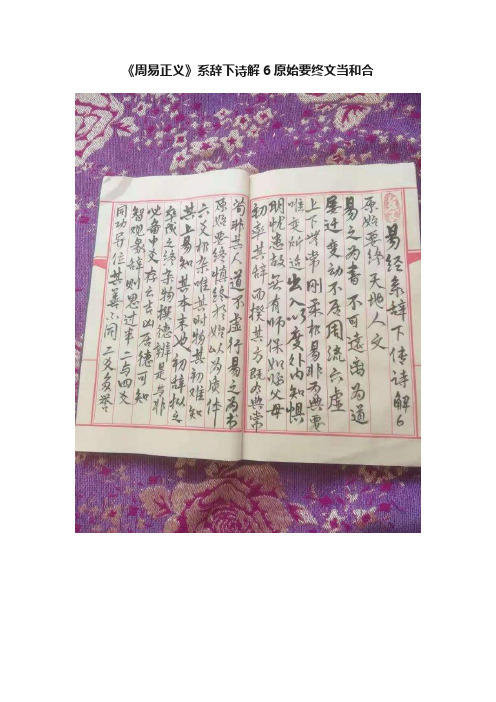 《周易正义》系辞下诗解6原始要终文当和合
易经系辞下传诗解6
原始要终 天地人文
易之为书 不可远 为道
屡迁 变动不居 周流六虚
上下无常 刚柔相易 非为典要
唯变所适 出入以度 外内知惧
明忧患故 无有师保 如临父母
初率其辞 而揆其方 既有典常
苟非其人 道不虚行 易之为书
原始要终 慎终于始 以为质体
六爻相杂 唯其时物 其初难知
其上易知 其本末也 初辞拟之
卒成之终 杂物撰德 辨是与非
必备中爻 存亡吉凶 居德可知
智观彖辞 则思过半 二与四爻
同功异位 其善不同 二爻多誉